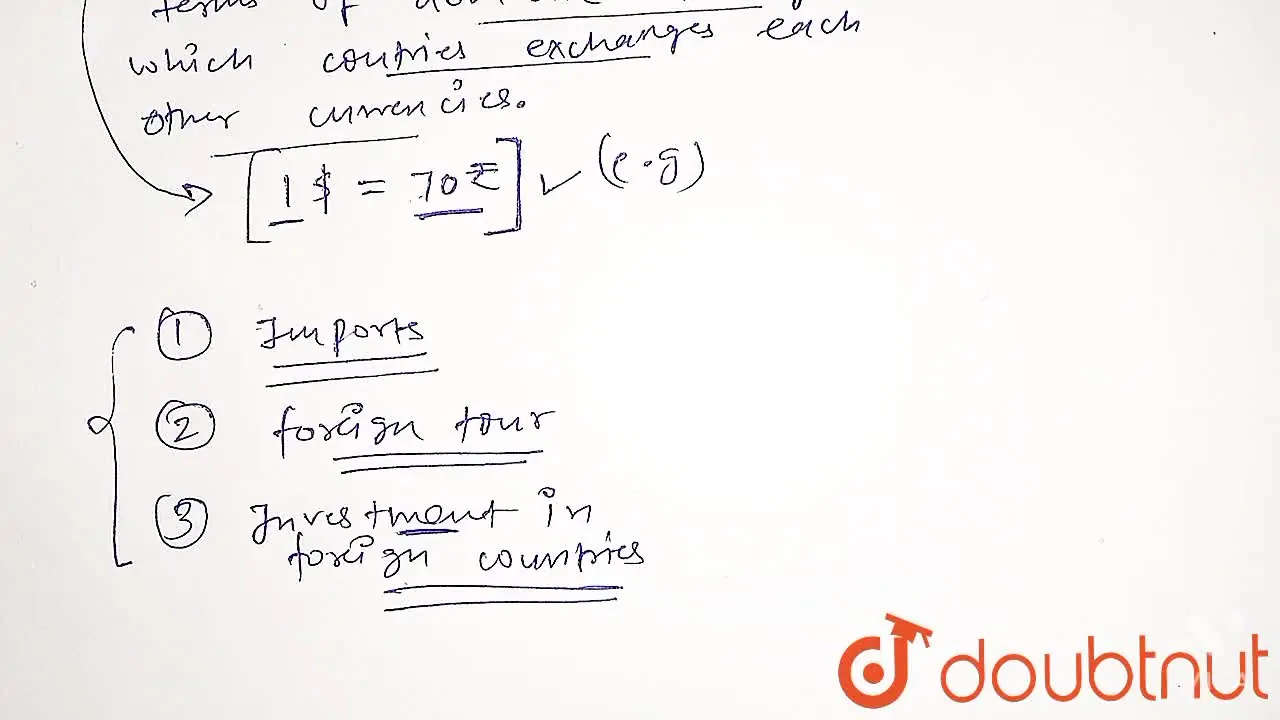 terms of
which coutries exchanges each
other currencies.
[1 $ = 70 ₹] ✓ (e.g)
① Imports
② foreign tour
③ Investment in
foreign countries
doubtnut